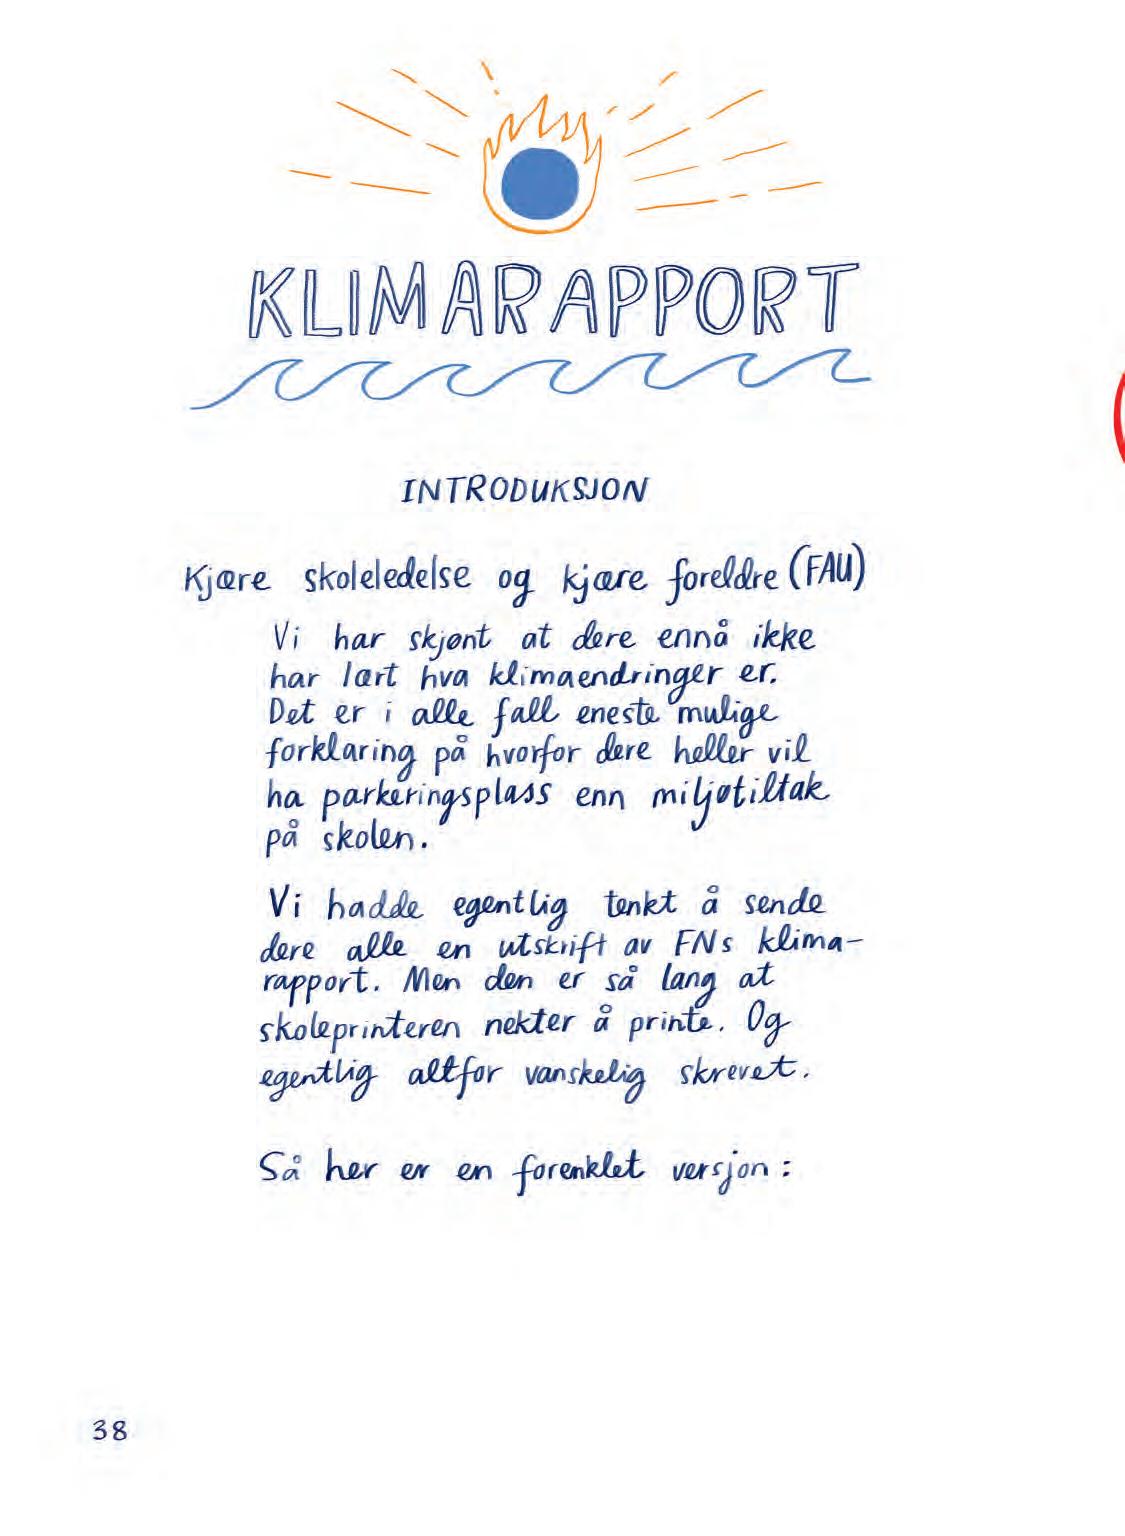 KLIMARAPPORT
INTRODUKSJON
Kjære skoleledelse og kjære foreldre (FAU)
Vi har skjønt at dere ennå ikke
har lært hva klimaendringer er.
Det er i alle fall eneste mulige
forklaring på hvorfor dere heller vil
ha parkeringsplass enn miljøtiltak
på skolen.
Vi hadde egentlig tenkt å sende
dere alle en utskrift av FNs klima-
rapport. Men den er så lang at
skoleprinteren nekter å printe. Og
egentlig altfor vanskelig skrevet.
Så her er en forenklet versjon:
38